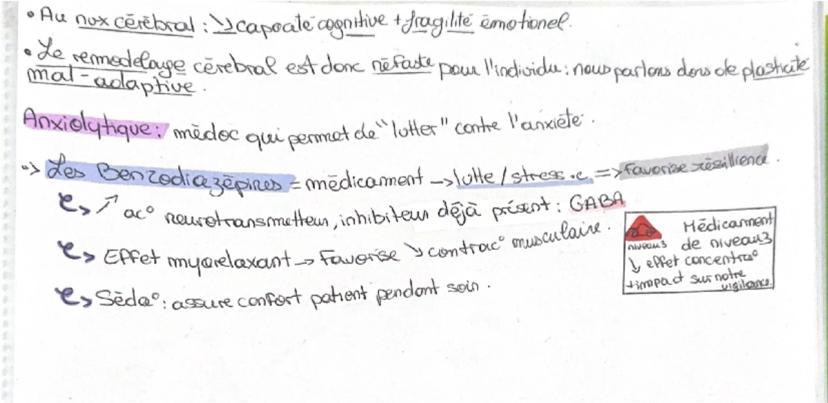 • Au nvx cérébral : ↘ capacité cognitive + fragilité émotionel.
• Le remodelage cérébral est donc néfaste pour l'individu : nous parlons dons de plasticité
mal-adaptive.
Anxiolytique : médoc qui permet de "lutter" contre l'anxiété.
=> Les Benzodiazépines = médicament → lutte / stress.c => Favorise résilience.
↳ ↗ ac° neurotransmetteur, inhibiteur déjà présent : GABA
↳ Effet myorelaxant → Favorise ↘ contrac° musculaire.
↳ Séda° : assure confort patient pendant soin.
Médicamment
niveau 3 de niveau 3
↓ effet concentra°
+ impact sur notre
vigilance